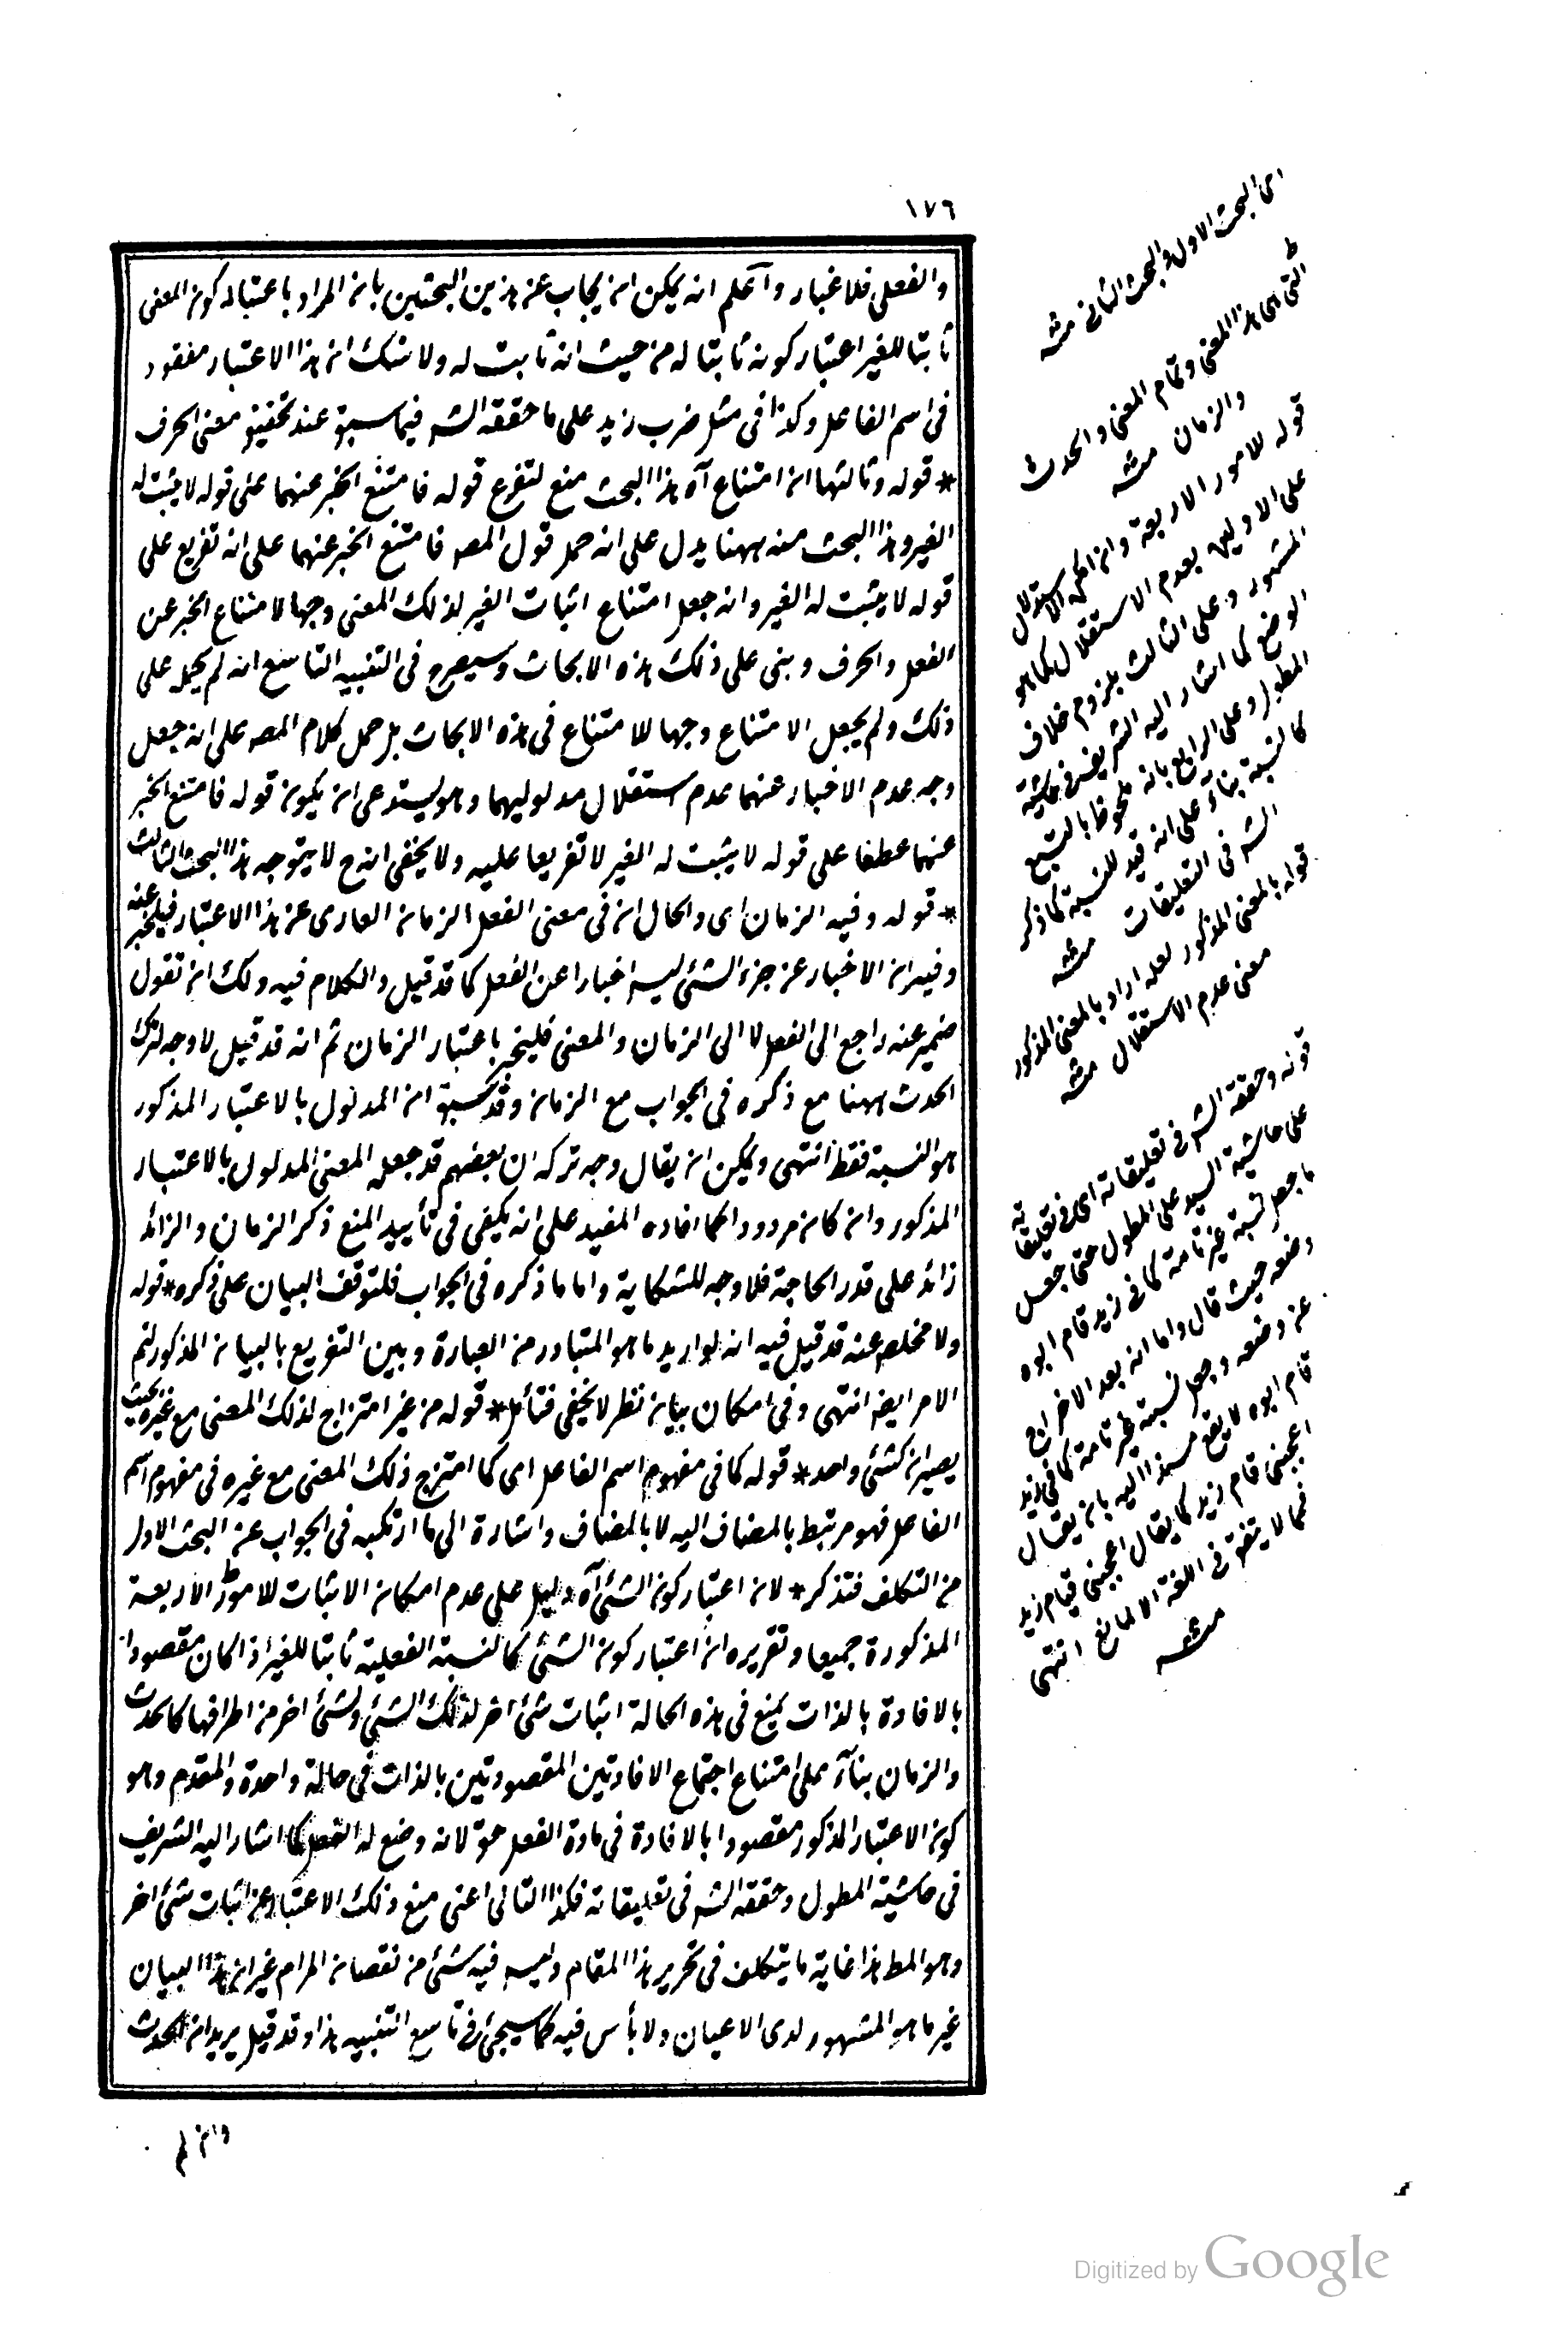 ١٧٦
والفعلى فلا غبار واعلم انه يمكن ان يجاب عن هذين البحثين بان المراد باعتبار كون المعنى
ثابتا للغير اعتبار كونه ثابتا له من حيث انه ثابت له ولا شك ان هذا الاعتبار مفقود
فى اسم الفاعل وكذا فى مثل ضرب زيد على ما حققه الشه فيما سبق عند تحقيق معنى الحرف
* قوله وثالثها ان امتناع آه هذا البحث منع لتفرع قوله فامتنع الخبر عنهما على قوله لا يثبت له
الغير وهذا البحث منه ههنا يدل على انه حمل قول المصه فامتنع الخبر عنهما على انه تفريع على
قوله لا يثبت له الغير وانه جعل امتناع اثبات الغير لذلك المعنى وجها لامتناع الخبر عن
الفعل والحرف وبنى على ذلك هذه الابحاث وسيصرح فى التنبيه التاسع انه لم يحمل على
ذلك ولم يجعل الامتناع وجها للامتناع فى هذه الابحاث بل حمل كلام المصه على انه جعل
وجه عدم الاخبار عنهما عدم استقلال مدلوليهما وهو يستدعى ان يكون قوله فامتنع الخبر
عنهما عطفا على قوله لا يثبت له الغير لا تفريعا عليه ولا يخفى انه ح لا يتوجه هذا البحث الثالث
* قوله وفيه الزمان اى والحال ان فى معنى الفعل الزمان العارى عن هذا الاعتبار فيلخبر عنه
وفيه ان الاخبار عن جزء الشئ ليس اخبارا عن الفعل كما قد قيل والكلام فيه ولك ان تقول
ضمير عنه راجع الى الفعل لا الى الزمان والمعنى فليخبر باعتبار الزمان ثم انه قد قيل لا وجه لترك
الحدث ههنا مع ذكره فى الجواب مع الزمان وقد سبق ان المدلول بالاعتبار المذكور
هو النسبة فقط انتهى ويمكن ان يقال وجه تركه ان بعضهم قد جعله المعنى المدلول بالاعتبار
المذكور وان كان مردودا كما افاده المفيد على انه يكفى فى تأييد المنع ذكر الزمان والزائد
زائد على قدر الحاجة فلا وجه للشكاية واما ما ذكره فى الجواب فلتوقف البيان على ذكره * قوله
ولا مخلص عنه قد قيل فيه انه لو اريد ما هو المتبادر من العبارة وبين التفريع بالبيان المذكور لتم
الامر ايضا انتهى وفى امكان بيان نظر لا يخفى فتأمل * قوله من غير امتزاج لذلك المعنى مع غيره بحيث
يصيران كشئ واحد * قوله كما فى مفهوم اسم الفاعل اى كما امتزج ذلك المعنى مع غيره فى مفهوم اسم
الفاعل فهو مرتبط بالمضاف اليه لا بالمضاف واشارة الى ما ارتكبه فى الجواب عن البحث الاول
من التكلف فتذكر * لان اعتبار كون الشئ آه دليل على عدم امكان الاثبات للامور الاربعة
المذكورة جميعا وتقريره ان اعتبار كون الشئ كالنسبة الفعلية ثابتا للغير اذا كان مقصودا
بالافادة بالذات يمنع فى هذه الحالة اثبات شئ اخر لذلك الشئ ولشئ اخر من اطرافها كالحدث
والزمان بنآء على امتناع اجتماع الافادتين المقصودتين بالذات فى حالة واحدة والمقدم وهو
كون الاعتبار المذكور مقصودا بالافادة فى مادة الفعل حق لانه وضع له الفعل كما اشار اليه الشريف
فى حاشية المطول وحققه الشه فى تعليقاته فكذا التالى اعنى منع ذلك الاعتبار عن اثبات شئ اخر
وهو المط هذا غاية ما يتكلف فى تحرير هذا المقام وليس فيه شئ من نقصان المرام غير ان هذا البيان
غير ما هو المشهور لدى الاعيان ولا بأس فيه كما سيجئ فى تاسع التنبيه هذا وقد قيل يريد ان الحدث
اى البحث الاول والبحث الثانى منه
اى هذا المعنى وتمام المعنى والحدث
والزمان منه
قوله للامور الاربعة وان امكن الاستدلال
على الاولين بعدم الاستقلال كما هو
المشهور وعلى الثالث بلزوم خلاف
الوضع كما اشار اليه الشريف فى حاشية
المطول وعلى الرابع بانه ملحوظ بالتبع
كالنسبة بناء على انه قيد للنسبة كما ذكر
الشه فى التعليقات منه
قوله بالمعنى المذكور لعله اراد بالمعنى المذكور
معنى عدم الاستقلال منه
قوله وحققه الشه فى تعليقاته اى فى تعليقاته
على حاشية السيد على المطول حتى جعل
ما جعل نسبة غير تامة كما فى زيد قام ابوه
وضعه حيث قال واما انه بعد الاخراج
عن وضعه وجعل نسبة غير تامة كما فى زيد
قام ابوه لا يقع مسندا اليه بان يقال
اعجبنى قام زيد كما يقال اعجبنى قيام زيد
فمما لا يتفق فى اللغة الا لمانع انتهى
منه
Digitized by Google